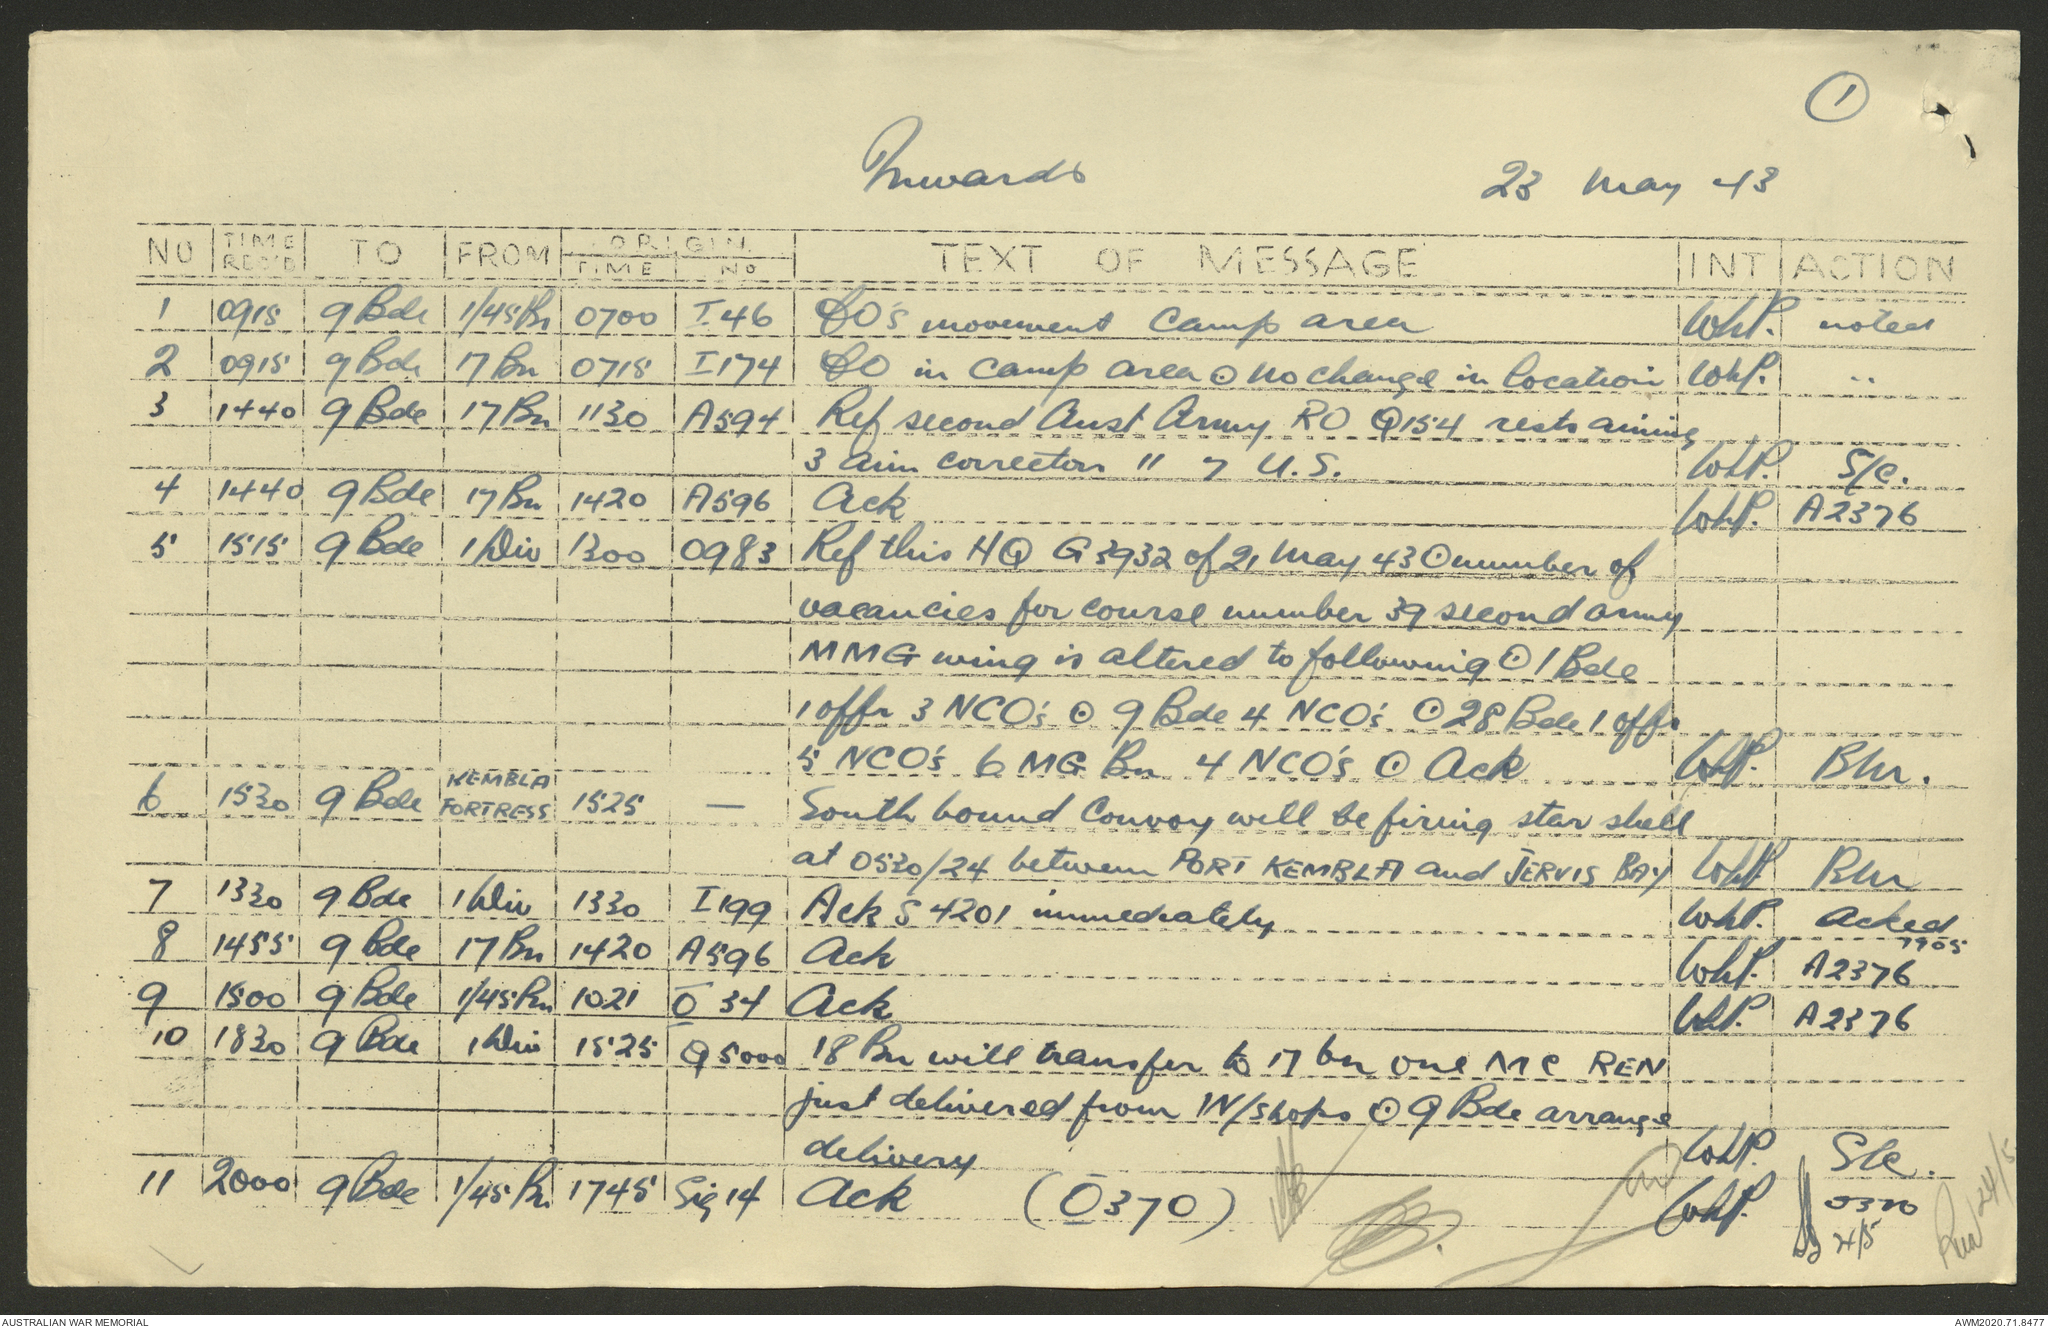 1
Inwards 23 May 43
NO TIME REC'D TO FROM ORIGIN TIME NO TEXT OF MESSAGE INT ACTION
1 0915 9 Bde 1/45 Bn 0700 I 46 CO's movement camp area WhP. noted
2 0915 9 Bde 17 Bn 0715 I 174 CO in camp area ⊙ no change in location WhP. ..
3 1440 9 Bde 17 Bn 1130 A594 Ref second Aust Army RO Q154 rests aiming
3 aim correctors U.S. WhP. S/C.
4 1440 9 Bde 17 Bn 1420 A596 Ack WhP. A2376
5 1515 9 Bde 1 Div 1300 0983 Ref this HQ G3932 of 21 May 43 ⊙ number of
vacancies for course number 39 second army
MMG wing is altered to following ⊙ 1 Bde
1 offr 3 NCO's ⊙ 9 Bde 4 NCO's ⊙ 28 Bde 1 offr
5 NCO's 6 MG Bn 4 NCO's ⊙ Ack WhP. BM.
6 1530 9 Bde KEMBLA FORTRESS 1525 — South bound Convoy will be firing star shell
at 0530/24 between PORT KEMBLA and JERVIS BAY WhP BM
7 1330 9 Bde 1 Div 1330 I 199 Ack S 4201 immediately WhP. acked
1905
8 1455 9 Bde 17 Bn 1420 A596 Ack WhP. A2376
9 1500 9 Bde 1/45 Bn 1021 O 34 Ack WhP. A2376
10 1830 9 Bde 1 Div 1525 Q5000 18 Bn will transfer to 17 bn one MC REN
just delivered from IN/shops ⊙ 9 Bde arrange
delivery WhP. S/C.
11 2000 9 Bde 1/45 Bn 1745 Sig 14 Ack (O370) WhP. 0370
24/5
24/5
AUSTRALIAN WAR MEMORIAL AWM2020.71.8477